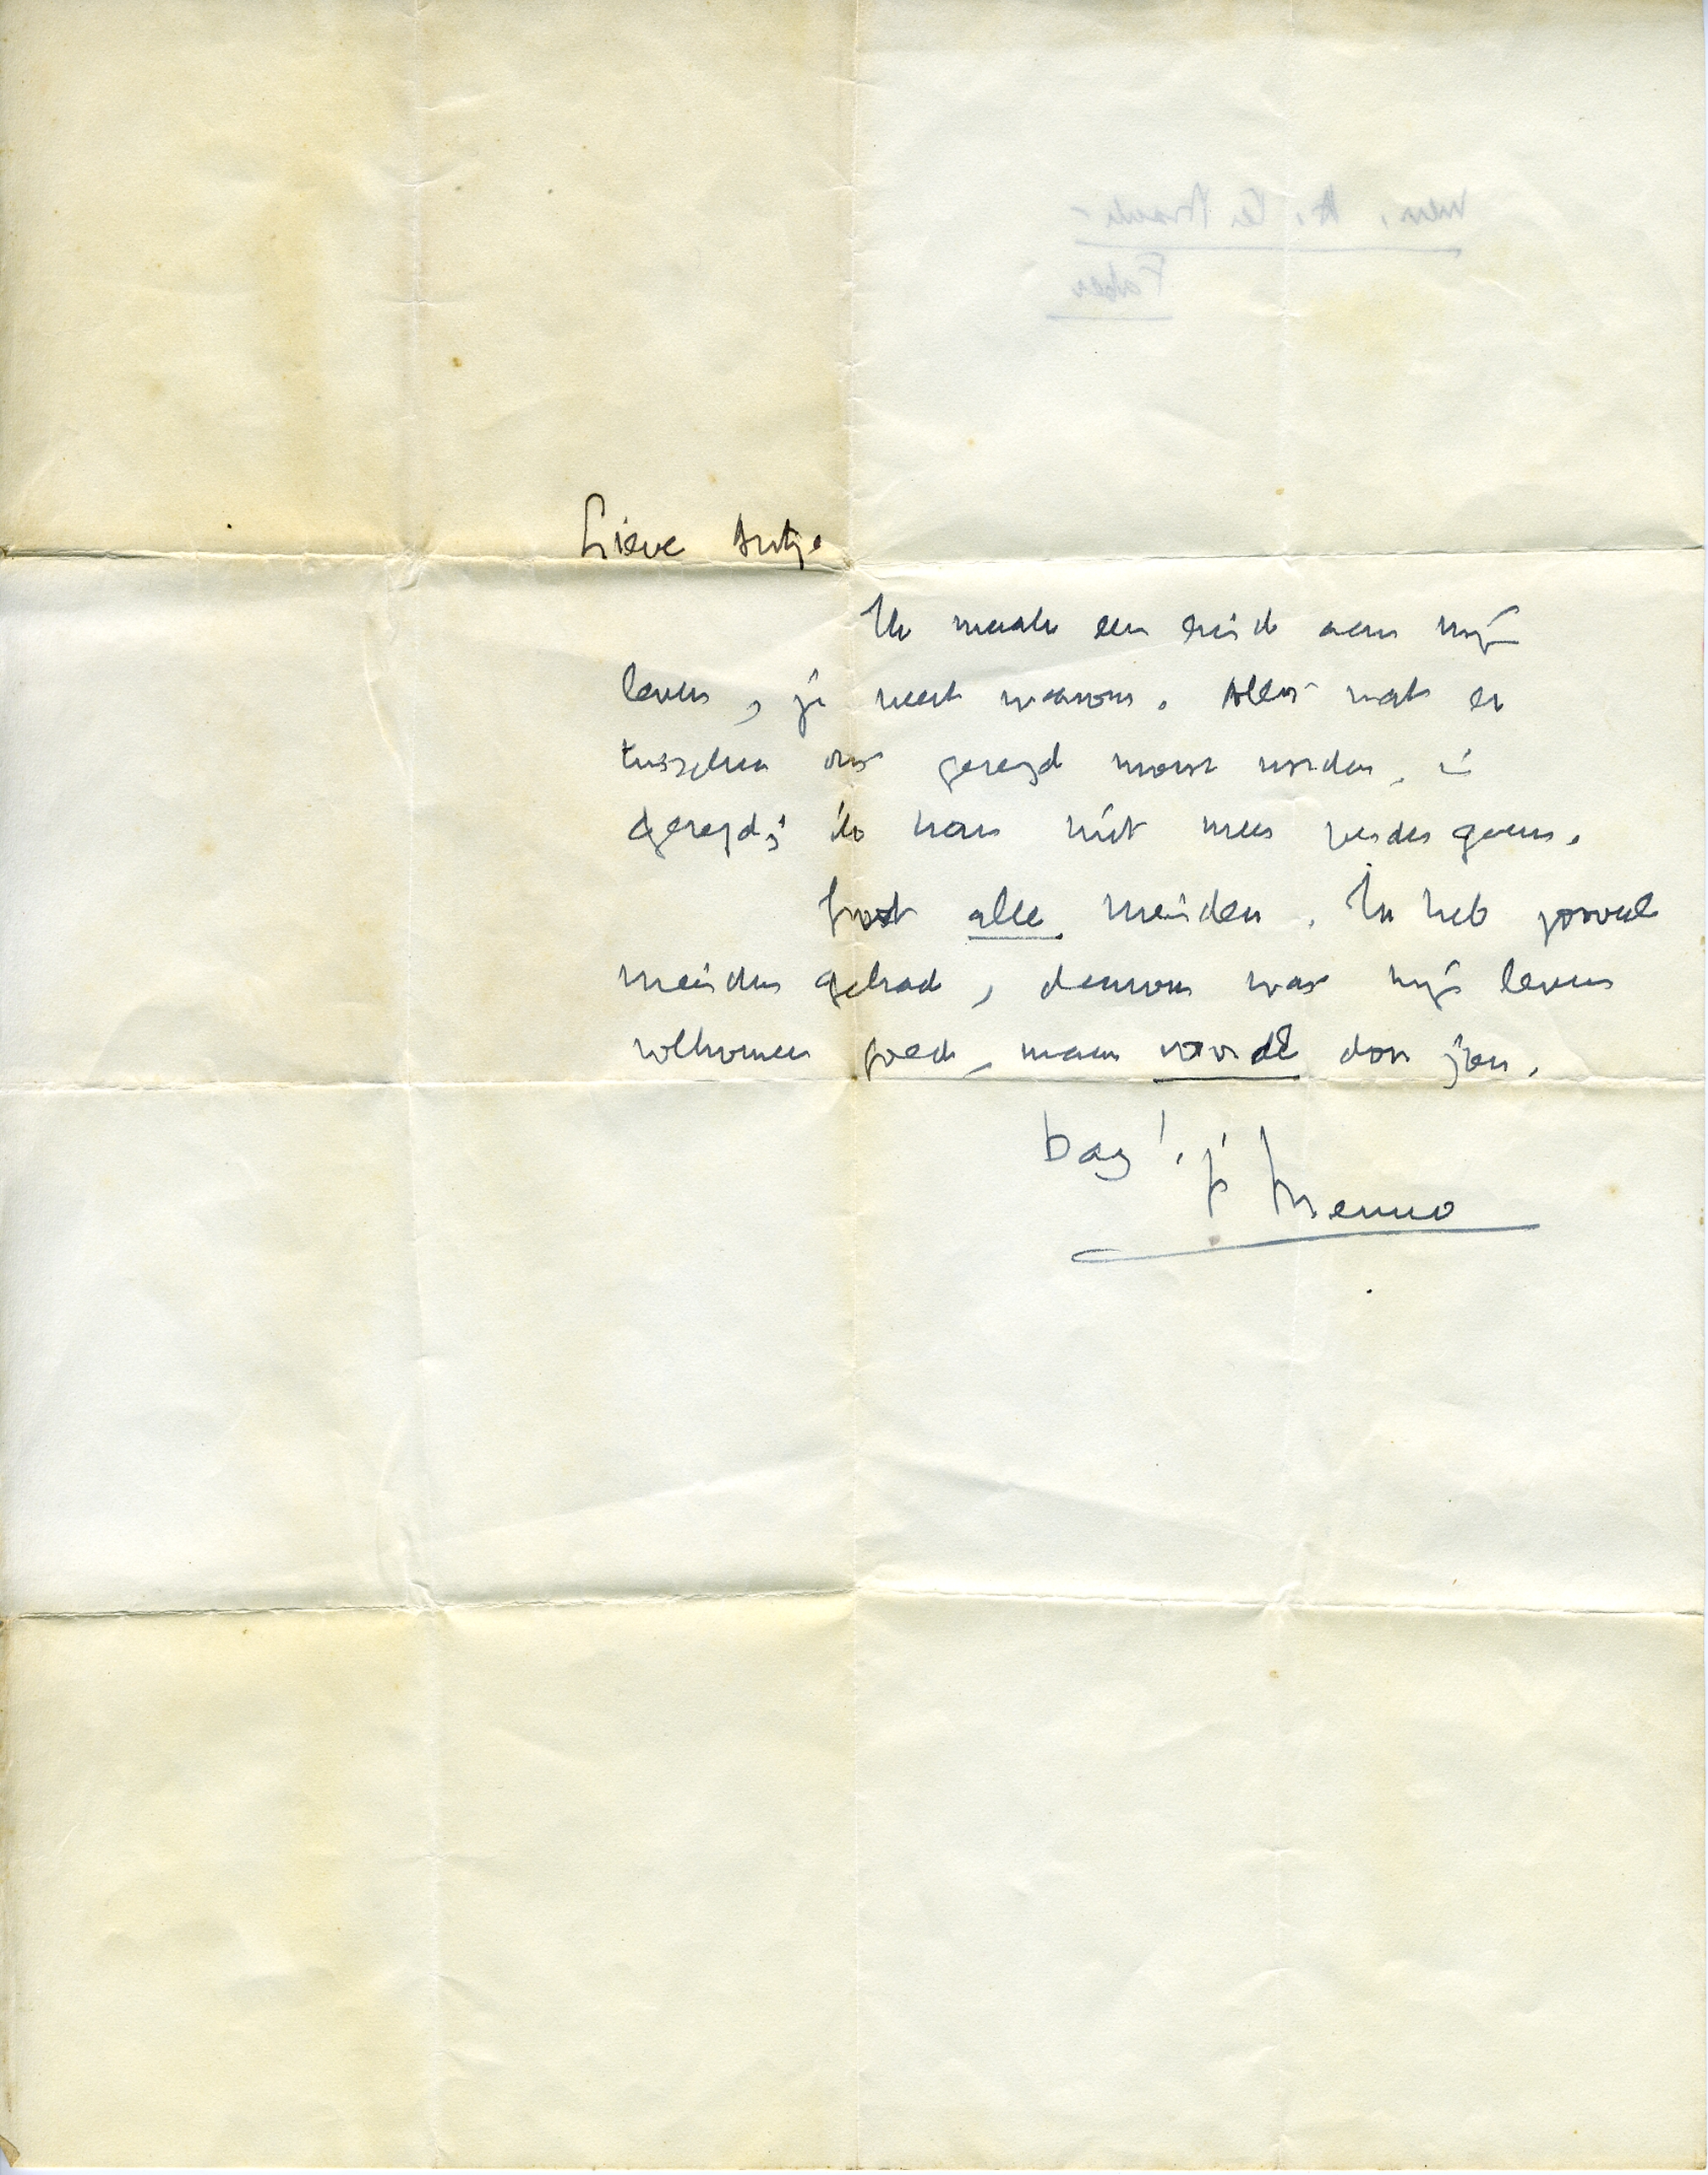 mevr. A. ter Braak-
Faber
Lieve Antje
Ik maak een eind aan mijn
leven, je weet waarom. Alles wat er
tusschen ons gezegd moest worden, is
gezegd; ik kan niet meer verder gaan.
Groet alle vrienden. Ik heb zooveel
vrienden gehad, daarom was mijn leven
volkomen goed, maar vooral door jou.
Dag! je Menno